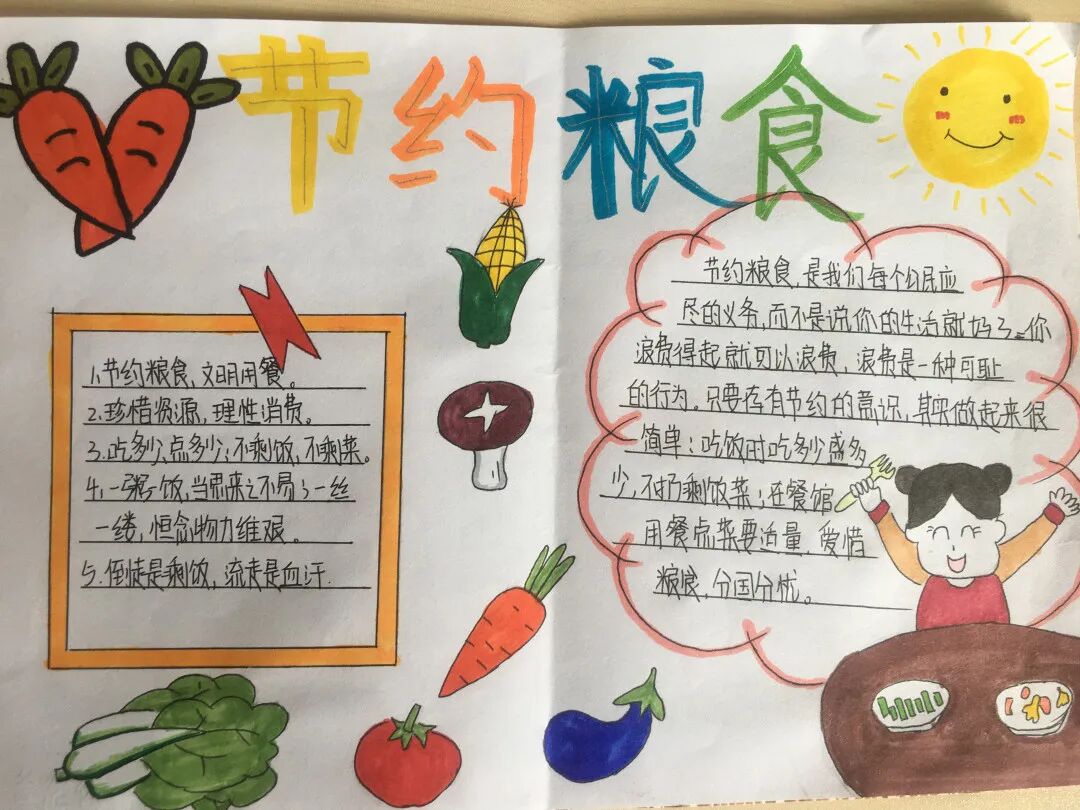 节约粮食
1.节约粮食,文明用餐。
2.珍惜资源,理性消费。
3.吃多少,点多少;不剩饭,不剩菜。
4.一粥一饭,当思来之不易;一丝
一缕,恒念物力维艰。
5.倒掉是剩饭,流走是血汗.
节约粮食,是我们每个公民应
尽的义务,而不是说你的生活就好了。你
浪费得起就可以浪费,浪费是一种可耻
的行为。只要存有节约的意识,其实做起来很
简单:吃饭时吃多少盛多
少,不扔剩饭菜;在餐馆
用餐点菜要适量,爱惜
粮食,分国分忧。